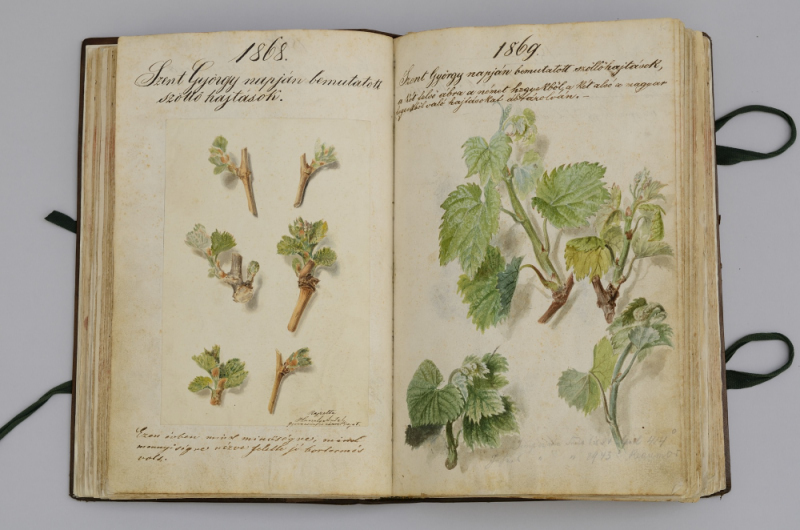 1868.
Szent György napján bemutatott
szőllő hajtások.
Ezen évben mind minőségre, mind
mennyiségre nézve felette jó bortermés
volt.
1869
Szent György napján bemutatott szőllőhajtások,
a két felső ábra a német hegyekből, a két alsó a magyar
hegyekből való hajtásokat ábrázolván. —